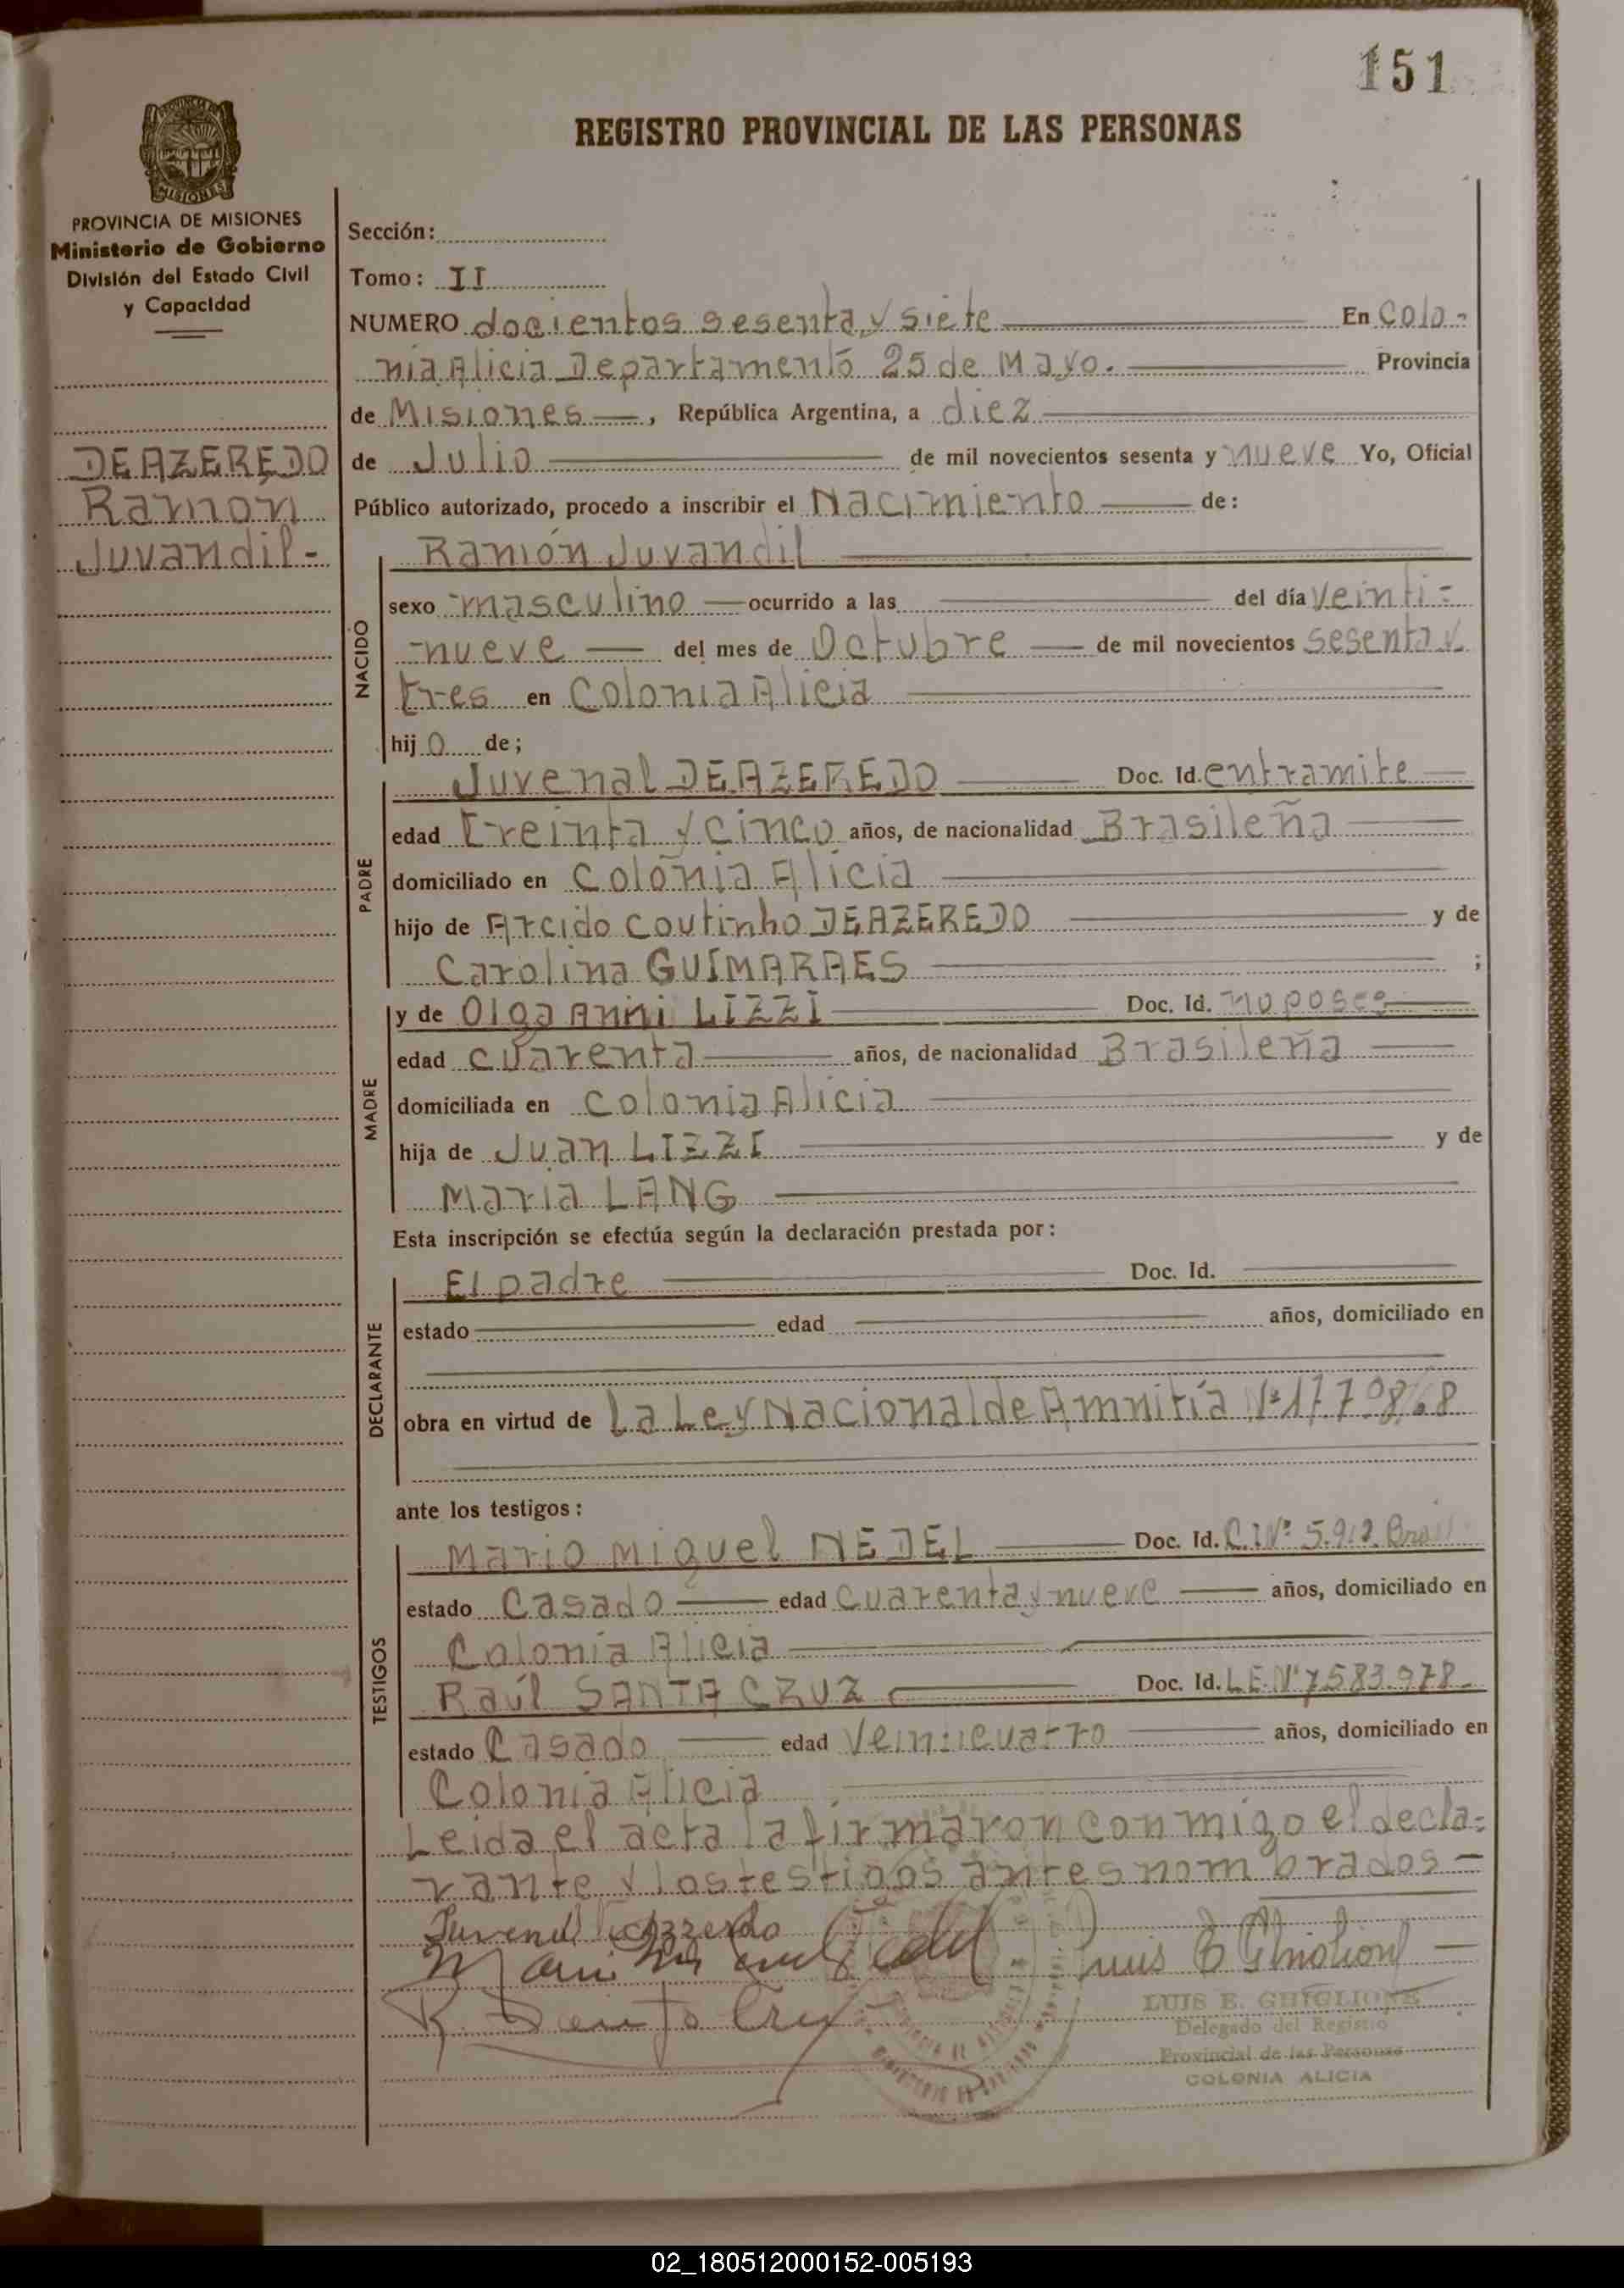 151
REGISTRO PROVINCIAL DE LAS PERSONAS
PROVINCIA DE MISIONES
Ministerio de Gobierno
División del Estado Civil
y Capacidad
DEAZEREDO
Ramón
Juvandil-
Sección:
Tomo: II
NUMERO docientos sesenta y siete En Colo-
nia Alicia Departamento 25 de Mayo. Provincia
de Misiones, República Argentina, a diez
de Julio de mil novecientos sesenta y nueve Yo, Oficial
Público autorizado, procedo a inscribir el Nacimiento de:
Ramón Juvandil
NACIDO
sexo masculino ocurrido a las del día veinti-
nueve del mes de Octubre de mil novecientos sesenta y
tres en Colonia Alicia
hijo de;
PADRE
Juvenal DEAZEREDO Doc. Id. entramite
edad treinta y cinco años, de nacionalidad Brasileña
domiciliado en Colonia Alicia
hijo de Arcido Coutinho DEAZEREDO y de
Carolina GUIMARAES ;
MADRE
y de Olga Anni LIZZI Doc. Id. no posee
edad cuarenta años, de nacionalidad Brasileña
domiciliada en Colonia Alicia
hija de Juan LIZZI y de
Maria LANG
Esta inscripción se efectúa según la declaración prestada por:
DECLARANTE
El padre Doc. Id.
estado edad años, domiciliado en
obra en virtud de la Ley Nacional de Amnitía Nº
ante los testigos:
TESTIGOS
Mario Miguel NEDEL Doc. Id. C.I Nº 5.912.
estado Casado edad Cuarenta y nueve años, domiciliado en
Colonia Alicia
Raúl SANTA CRUZ Doc. Id. L.E.Nº 7.583.978
estado Casado edad Veinticuatro años, domiciliado en
Colonia Alicia
Leida el acta la firmaron conmigo el decla-
rante y los testigos antes nombrados-
LUIS E. GHIGLIONE
Delegado del Registro
Provincial de las Personas
COLONIA ALICIA
02_180512000152-005193